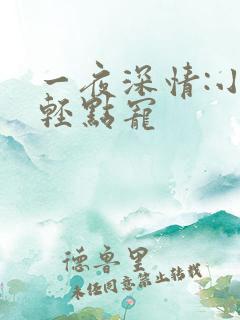 一夜深情:小
輕點寵
德魯里
未经同意禁止转载